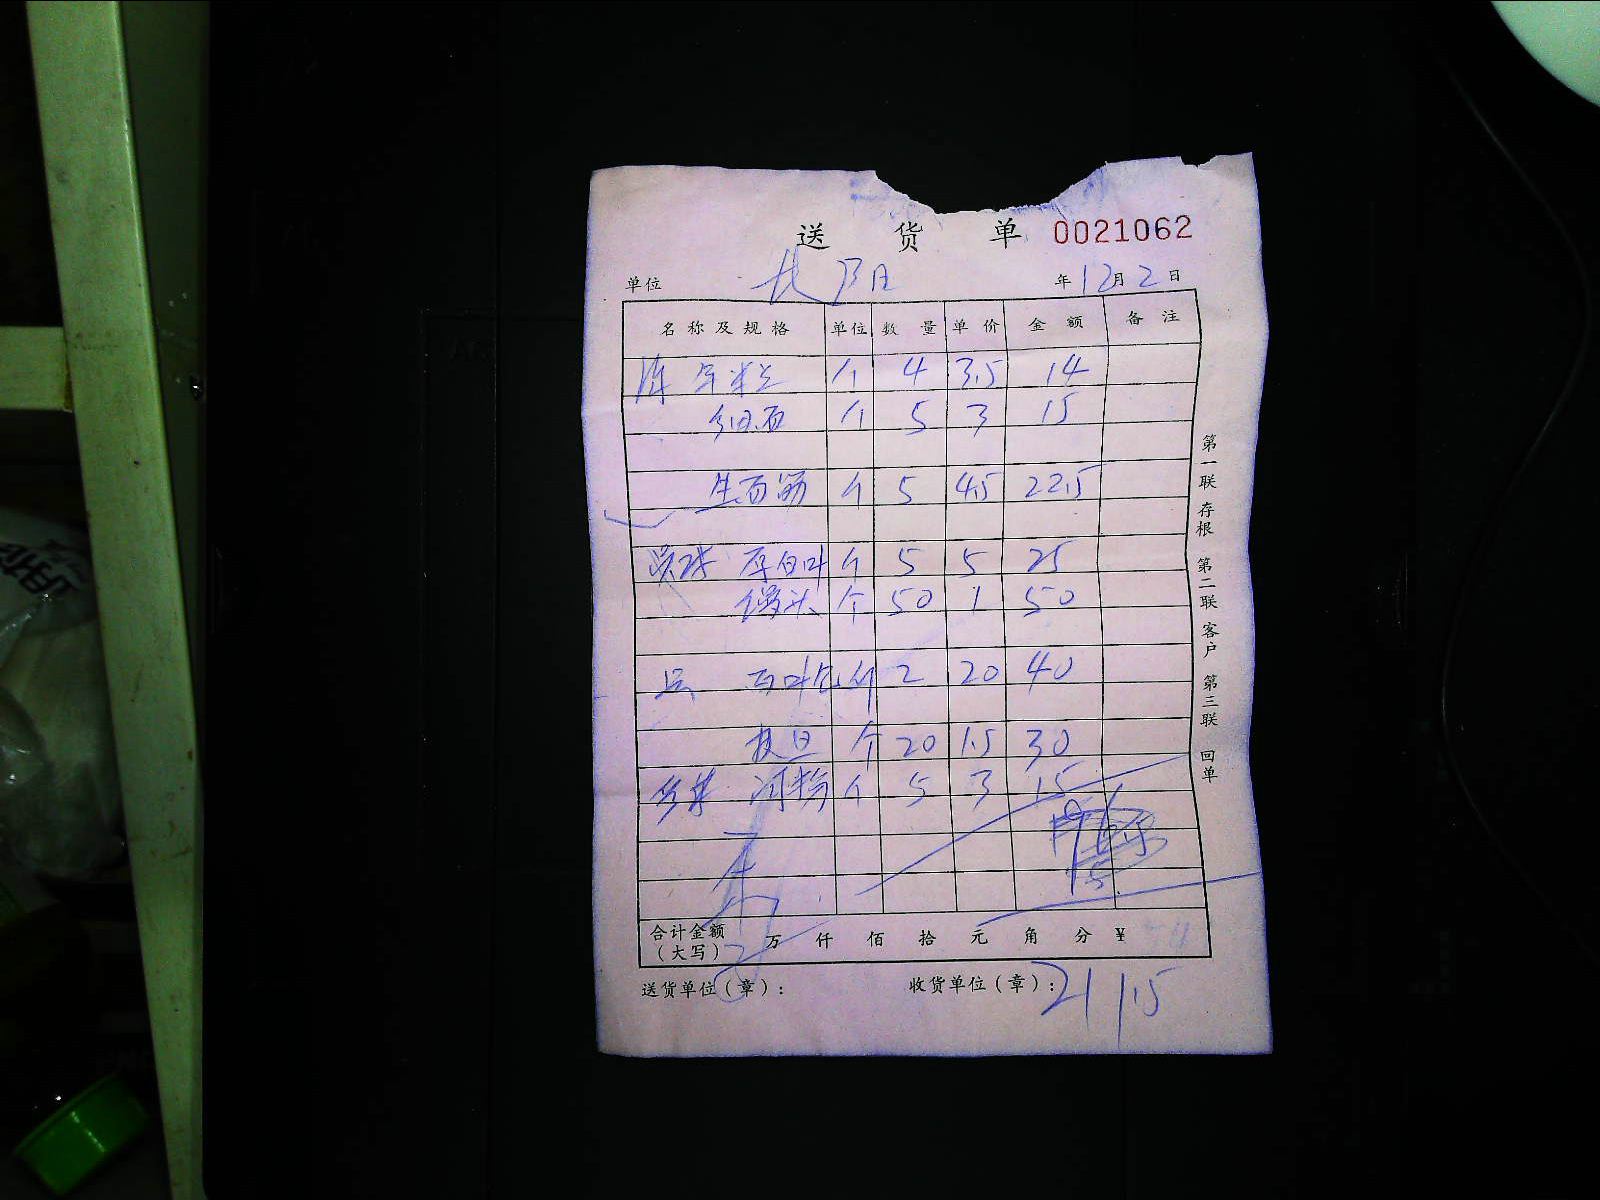 送货单 0021062
单位 长阳 年12月2日
名称及规格 单位 数量 单价 金额 备注
陈 个 4 3.5 14
个 5 3 15
生面筋 个 5 4.5 22.5
厚百叶 个 5 5 25
馒头 个 50 1 50
百叶包 个 2 20 40
皮旦 个 20 1.5 30
河粉 个 5 3 15
合计金额（大写） 万 仟 佰 拾 元 角 分 ¥
送货单位（章）： 收货单位（章）： 211.5
第一联 存根 第二联 客户 第三联 回单